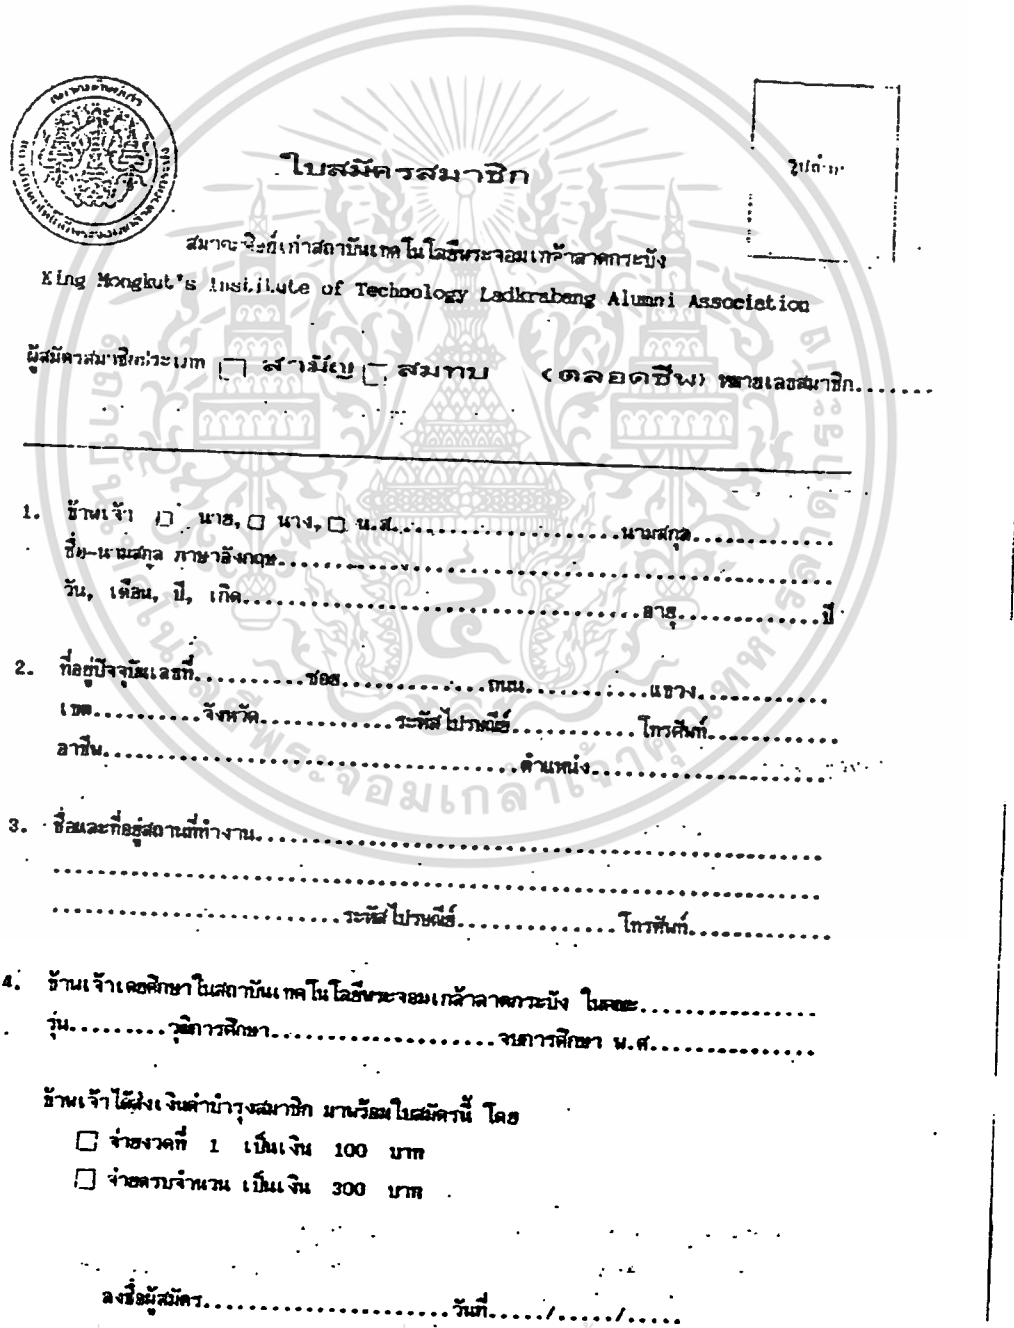 ใบสมัครสมาชิก
รูปถ่าย
สมาคมศิษย์เก่าสถาบันเทคโนโลยีพระจอมเกล้าลาดกระบัง
King Mongkut's Institute of Technology Ladkrabang Alumni Association
ผู้สมัครสมาชิกประเภท □ สามัญ □ สมทบ (ตลอดชีพ) หมายเลขสมาชิก........
1. ข้าพเจ้า □ นาย, □ นาง, □ น.ส.........................นามสกุล.............
ชื่อ-นามสกุล ภาษาอังกฤษ.............................................................
วัน, เดือน, ปี, เกิด............................................อายุ...............ปี
2. ที่อยู่ปัจจุบันเลขที่............ซอย...............ถนน.............แขวง.............
เขต...........จังหวัด..............ระหัสไปรษณีย์.............โทรศัพท์.............
อาชีพ............................................ตำแหน่ง.........................
3. ชื่อและที่อยู่สถานที่ทำงาน.............................................................
..........................................................................................
...............................ระหัสไปรษณีย์................โทรศัพท์...............
4. ข้าพเจ้าเคยศึกษาในสถาบันเทคโนโลยีพระจอมเกล้าลาดกระบัง ในคณะ...................
รุ่น..........วุฒิการศึกษา........................จบการศึกษา พ.ศ..................
ข้าพเจ้าได้ส่งเงินค่าบำรุงสมาชิก มาพร้อมใบสมัครนี้ โดย
□ จ่ายงวดที่ 1 เป็นเงิน 100 บาท
□ จ่ายครบจำนวน เป็นเงิน 300 บาท
ลงชื่อผู้สมัคร..........................วันที่...../....../......